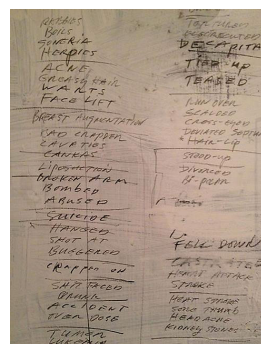 RABIES
BOILS
HERPIES
ACNE
GREASY HAIR
WARTS
FACE LIFT
BREAST AUGMENTATION
BAD CRAPPER
CAVATIES
CANKAS
LIPOSUCTION
BROKEN ARM
BOMBED
ABUSED
SUICIDE
HANGED
SHOT AT
BUGGERED
CRAPPED ON
SHIT FACED
DRUNK
ACCIDENT
OVER DOSE
TUMOR
DECAPITA
TIED-UP
TEASED
RUN OVER
SCALDED
CROSS-EYED
HAIR-LIP
STOOD-UP
DIVORCED
FELL DOWN
CASTRATED
HEART ATTACK
STROKE
HEAT STROKE
SORE THUMB
HEADACHE
KIDNEY STONES